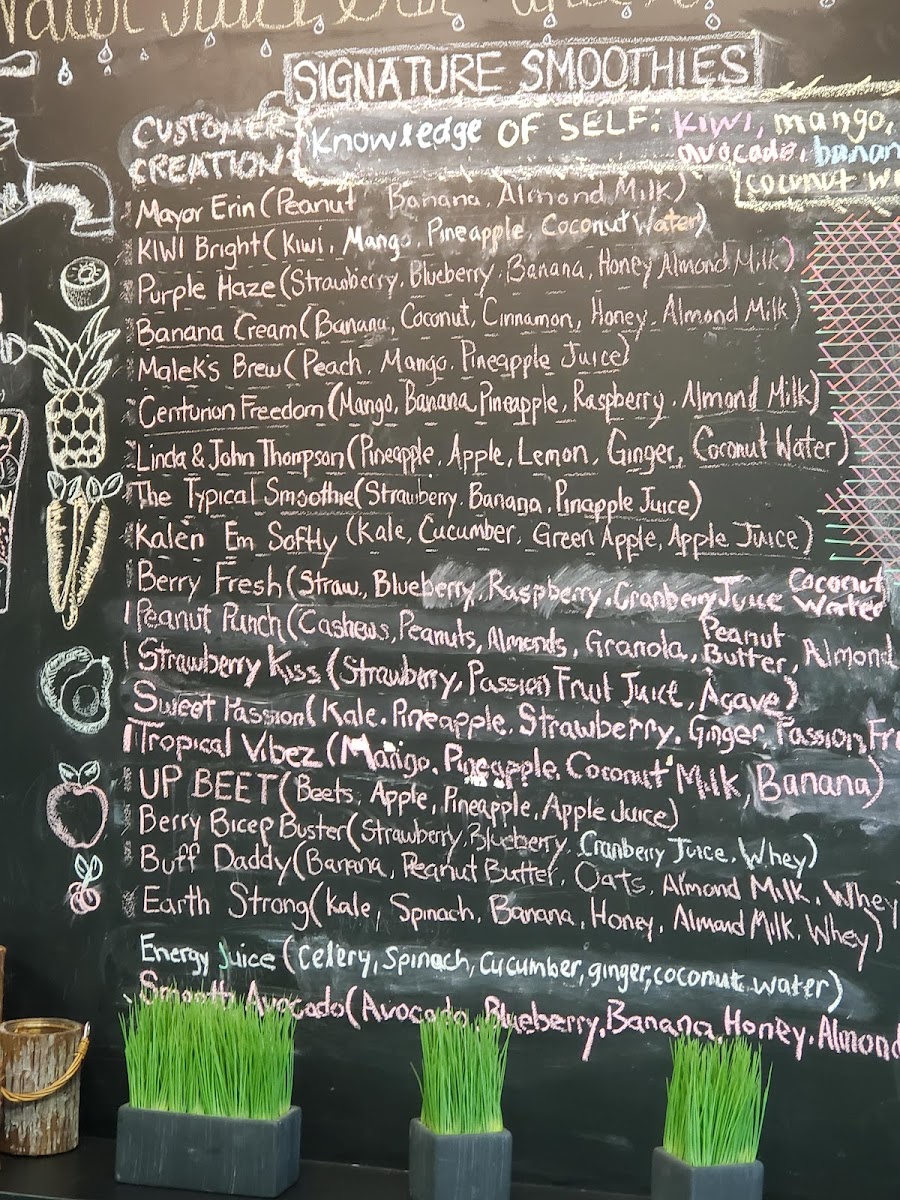 SIGNATURE SMOOTHIES
CUSTOMER
CREATIONS
Knowledge OF SELF: KIWI, mango,
avocado, banan
coconut wa
Mayor Erin (Peanut Banana, Almond Milk)
KIWI Bright (Kiwi, Mango, Pineapple, Coconut Water)
Purple Haze (Strawberry, Blueberry, Banana, Honey Almond Milk)
Banana Cream (Banana, Coconut, Cinnamon, Honey, Almond Milk)
Malek's Brew (Peach, Mango, Pineapple Juice)
Centurion Freedom (Mango, Banana, Pineapple, Raspberry, Almond Milk)
Linda & John Thompson (Pineapple, Apple, Lemon, Ginger, Coconut Water)
The Typical Smoothie (Strawberry, Banana, Pinapple Juice)
Kalen Em Softly (Kale, Cucumber, Green Apple, Apple Juice)
Berry Fresh (Straw., Blueberry, Raspberry, Cranberry Juice Coconut Water
Peanut Punch (Cashews, Peanuts, Almonds, Granola, Peanut Butter, Almond
Strawberry Kiss (Strawberry, Passion Fruit Juice, Agave)
Sweet Passion (Kale, Pineapple, Strawberry, Ginger, Passion Fr
Tropical Vibez (Mango, Pineapple, Coconut Milk, Banana)
UP BEET (Beets, Apple, Pineapple, Apple Juice)
Berry Bicep Buster (Strawberry, Blueberry, Cranberry Juice, Whey)
Buff Daddy (Banana, Peanut Butter, Oats, Almond Milk, Whey
Earth Strong (Kale, Spinach, Banana, Honey, Almond Milk, Whey)
Energy Juice (Celery, Spinach, Cucumber, ginger, coconut water)
Smooth Avocado (Avocado, Blueberry, Banana, Honey, Almond